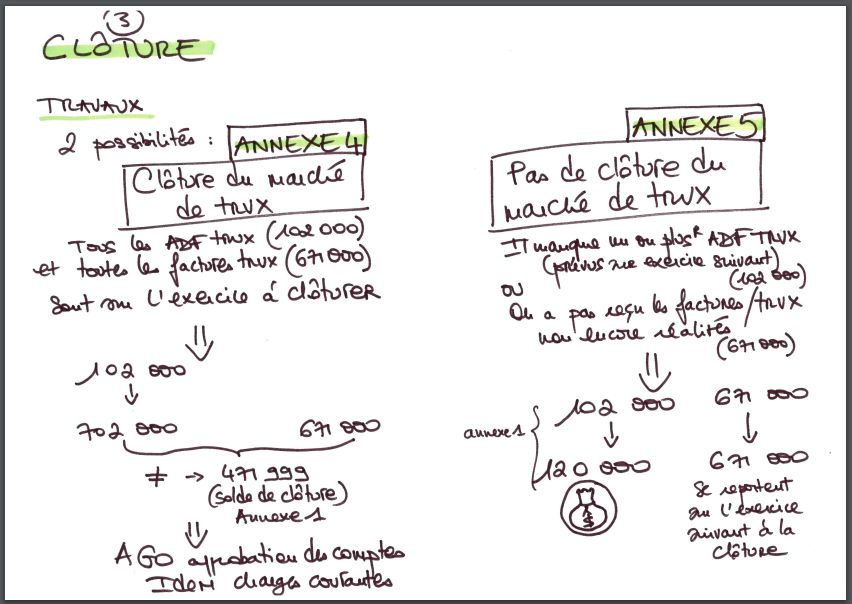 ③
CLÔTURE
TRAVAUX
2 possibilités :
ANNEXE 4
Clôture du marché
de trvx
Tous les ADF trvx (102 000)
et toutes les factures trvx (671 000)
sont sur l'exercice à clôturer
102 000
702 000 671 000
≠ → 471 999
(solde de clôture)
Annexe 1
AGO approbation des comptes
Idem charges courantes
ANNEXE 5
Pas de clôture du
marché de trvx
Il manque un ou plusrs ADF TRVX
(prévus sur exercice suivant)
(102 000)
ou
On a pas reçu les factures/trvx
non encore réalités
(671 000)
102 000 671 000
annexe 1
120 000 671 000
$
Se reportent
sur l'exercice
suivant à la
clôture